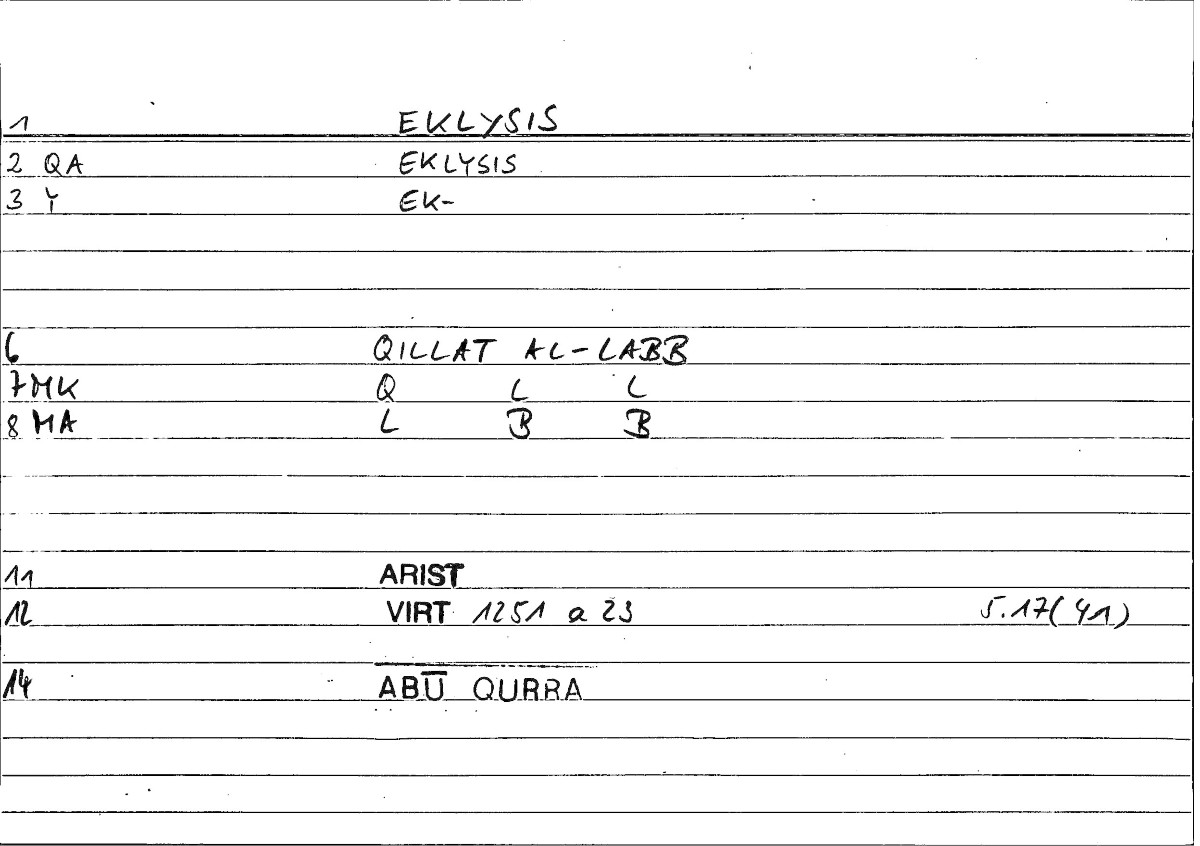 1 EKLYSIS
2 QA EKLYSIS
3 Y EK-
6 QILLAT AL-LABB
7 MK Q L L
8 MA L B B
11 ARIST
12 VIRT 1251 a 23 5.17(41)
14 ABŪ QURRA